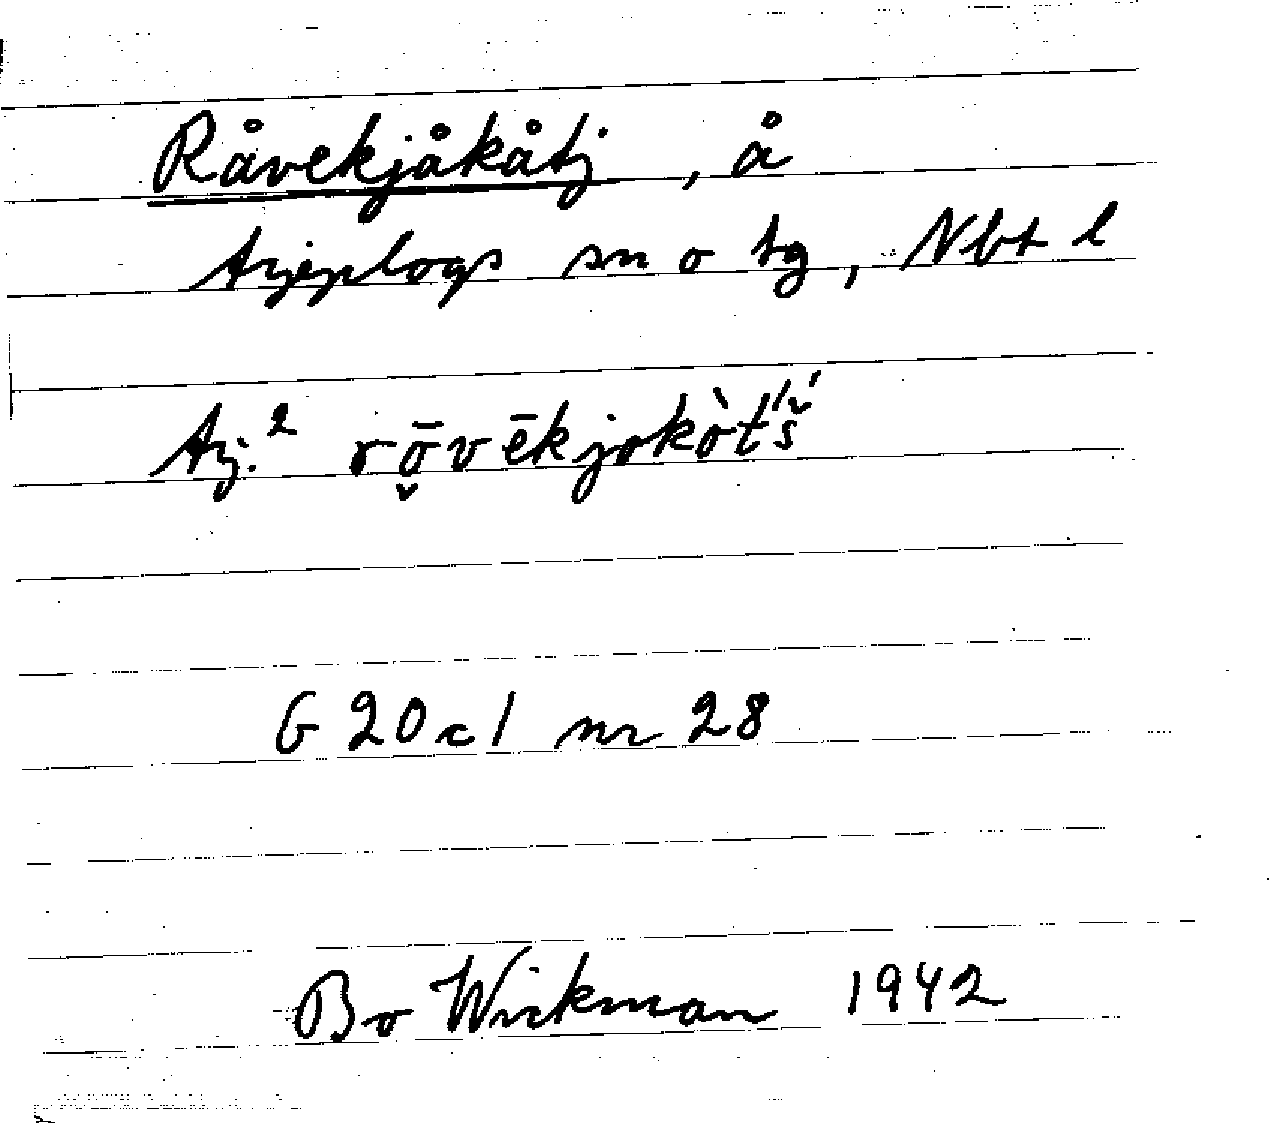 Råvekjåkåtj, å
Arjeplogs sn o tg, Nbt l
Arj.² rō̬vēkjokòt́š́
G 20 c 1 nr 28
Bo Wickman 1942